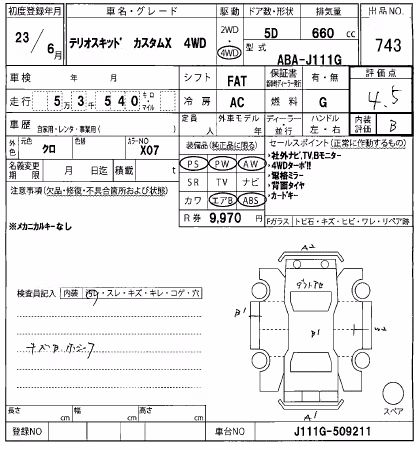 初度登録年月
車名・グレード
駆動
ドア数・形状
排気量
出品NO
23/6月
テリオスキッド カスタムX 4WD
2WD
4WD
5D
660 cc
743
型式
ABA-J111G
車検 年 月
シフト
FAT
保証書
有・無
評価点
走行 5万3千540 キロ マイル
冷房
AC
燃料
G
4.5
車歴
自家用・レンタ・事業用( )
定員
人
外車モデル
年
ディーラー
並行
ハンドル
左・右
内装評価
B
外色
元色
クロ
色替
カラーNO
X07
装備品(純正品に限る)
セールスポイント(正常に作動するもの)
PS PW AW
・社外ナビ,TV,Bモニター
・4WDターボ!!
名義変更期限
月 日迄
積載
t
SR TV ナビ
・電格ミラー
・背面タイヤ
注意事項(欠品・修復・不具合箇所および状態)
カワ エアB ABS
・カードキー
R券 9,970 円
※メカニカルキーなし
Fガラス
トビ石・キズ・ヒビ・ワレ・リペア跡
A2
検査員記入
内装
汚レ・スレ・キズ・キレ・コゲ・穴
B1
B1
A1
スペア
長さ cm
幅 cm
高さ cm
登録NO
車台NO
J111G-509211